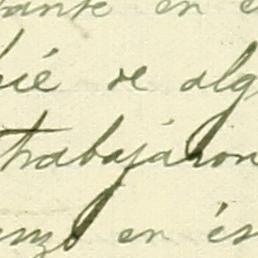 ante en e
bié se alg
trabajáron
enzó en és